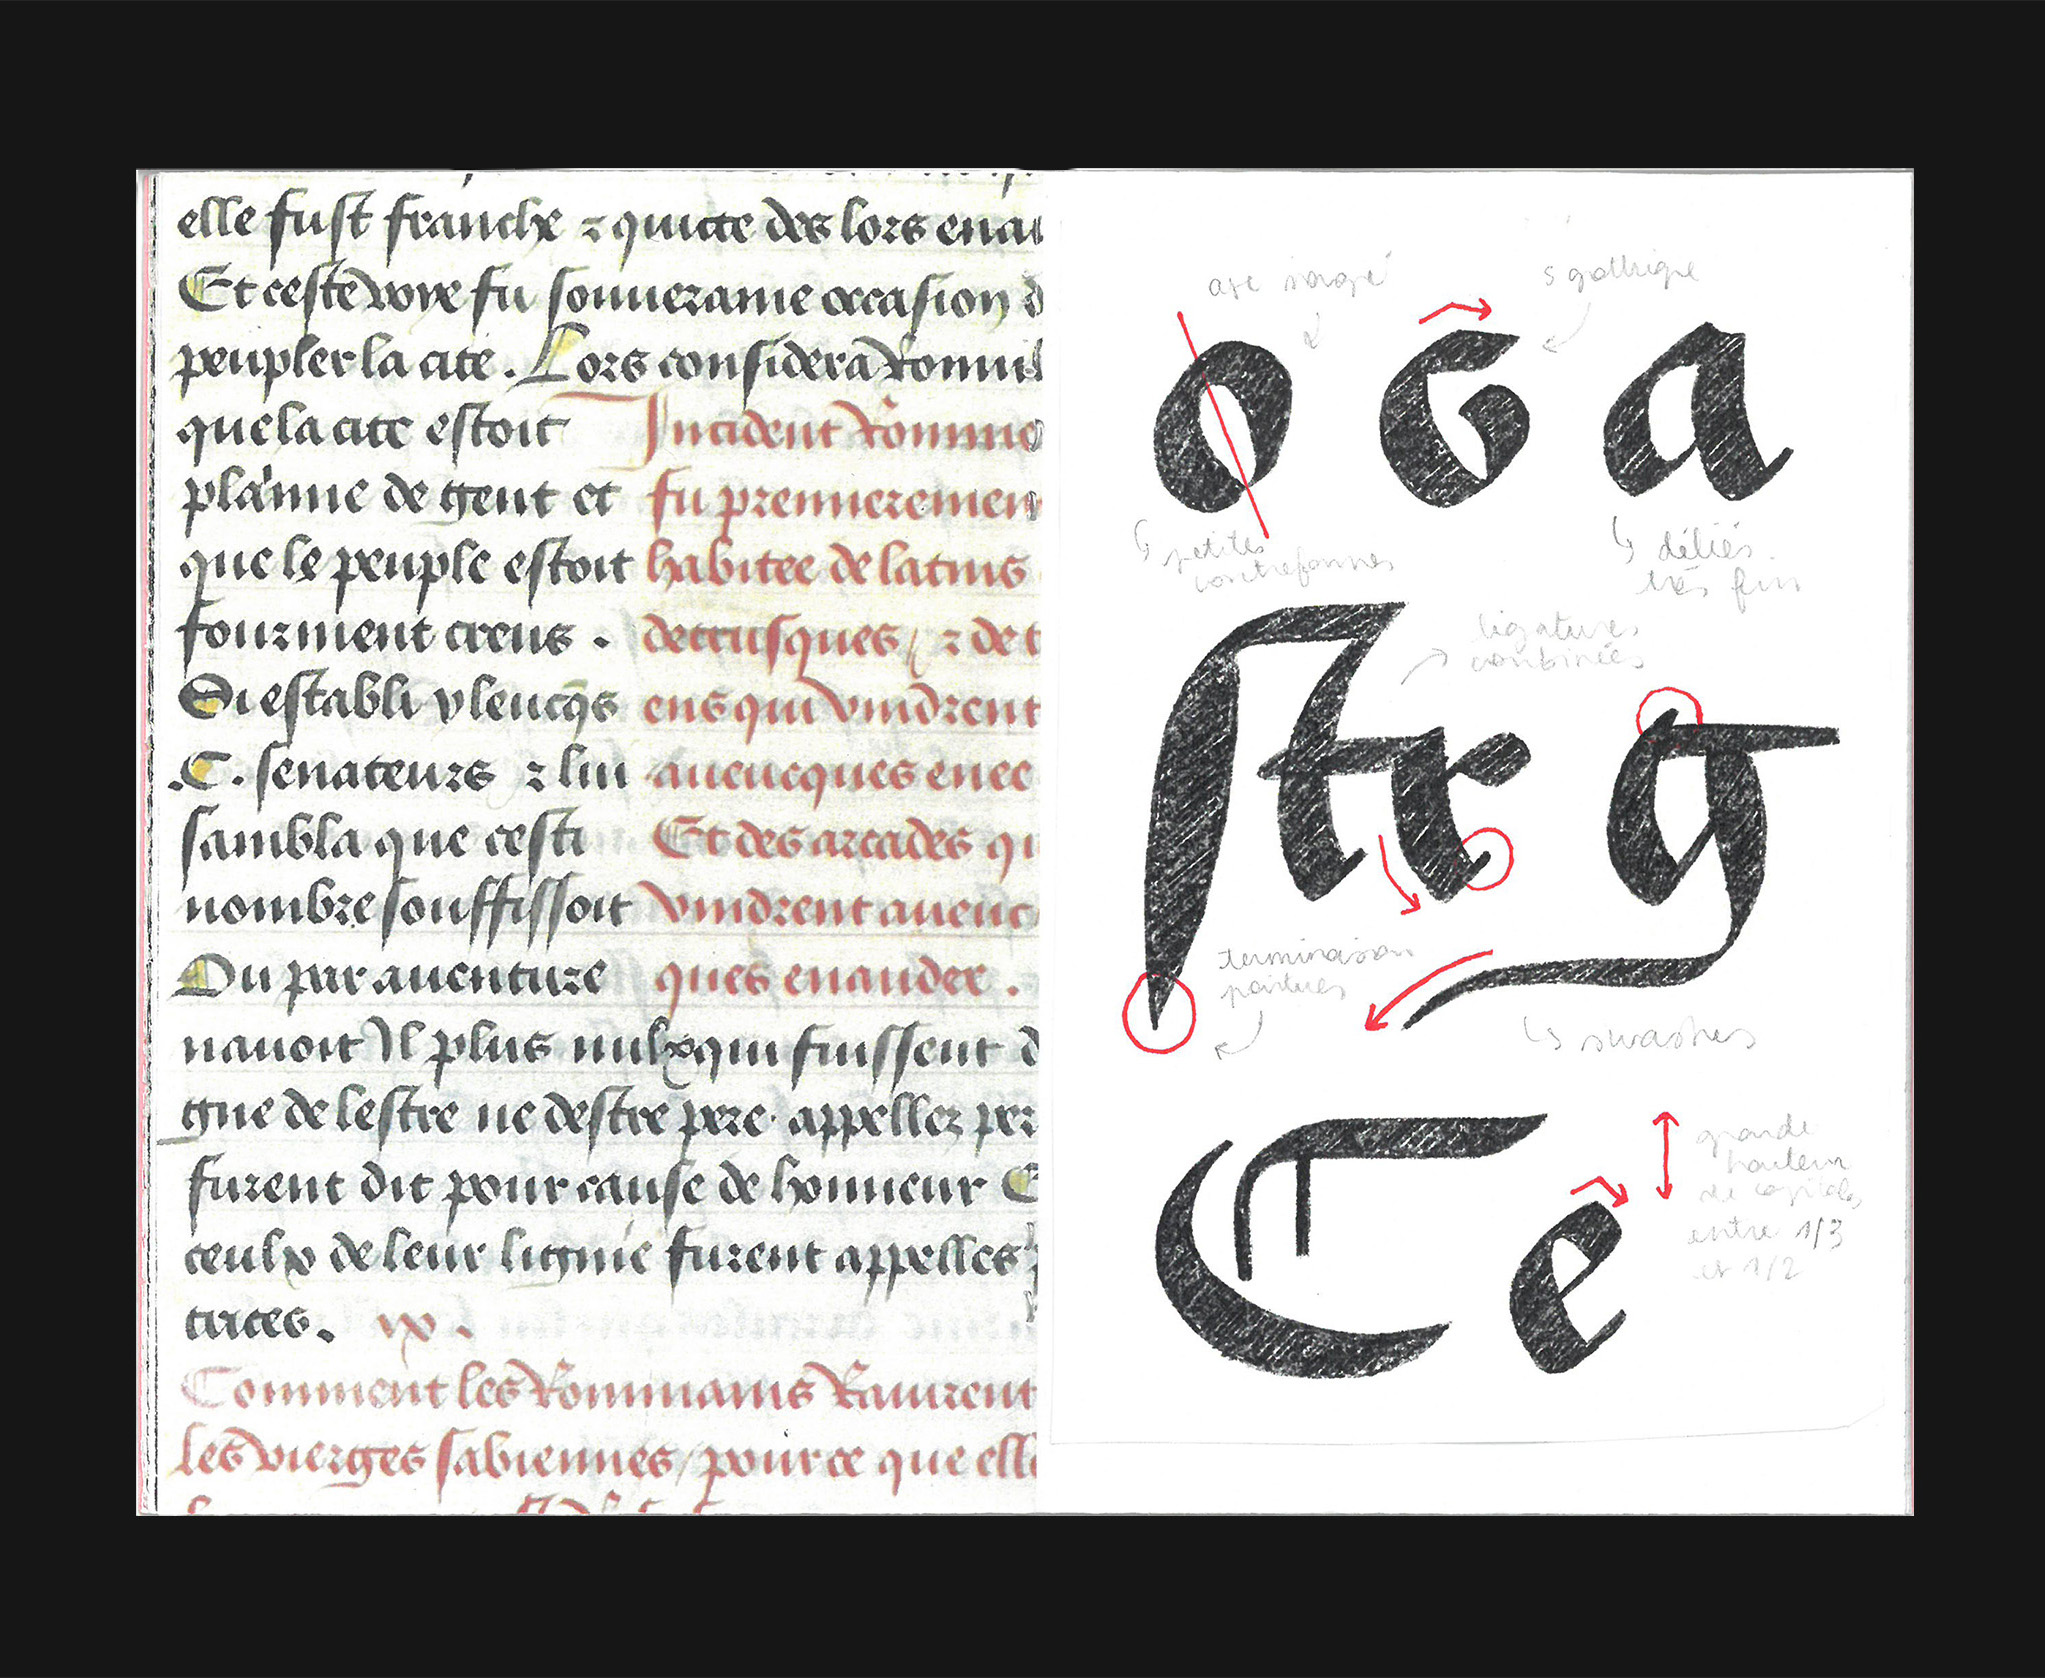 elle fust franche ⁊ quicte des lors enau
Et ceste voye fu souueraine occasion d
peupler la cite . Lors considera Romul
que la cite estoit
plainne de gent et
que le peuple estoit
fourment creus .
Si establi
.C. senateurs ⁊ lui
sambla que cesti
nombre souffissoit
Ou par auenture
Incident Romme
fu premierement
habitee de latins
detrusques / ⁊ de t
ens qui vindrent
auecques enee
Et des arcades qi
vindrent auenc
ques enander .
nauoit Il plus nulx qui fuissent d
gne de lestre ne destre pere . appellez per
furent dit pour cause de honneur E
ceulx de leur lignie furent appelles
trices . ix .
Comment les Rommains Rauirent
les vierges sabiennes / pour ce que elle
axe
s gothique
o s a
petites
contreformes
déliés
très fin
ligatures
combinées
str g
terminaison
pointues
swashes
C e
grande
hauteur
de capitales
entre 1/3
et 1/2